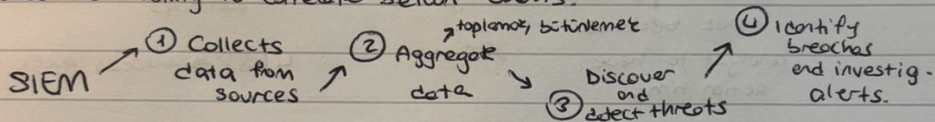 SIEM
① Collects
data from
sources
② Aggregate
toplamak, bütünlemek
data
③ Discover
and
detect threats
④ identify
breaches
and investig.
alerts.